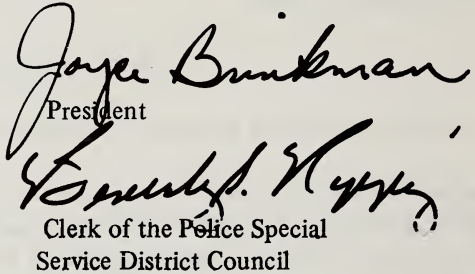 Joyce Brinkman
President
Beverly S. Rippy
Clerk of the Police Special
Service District Council